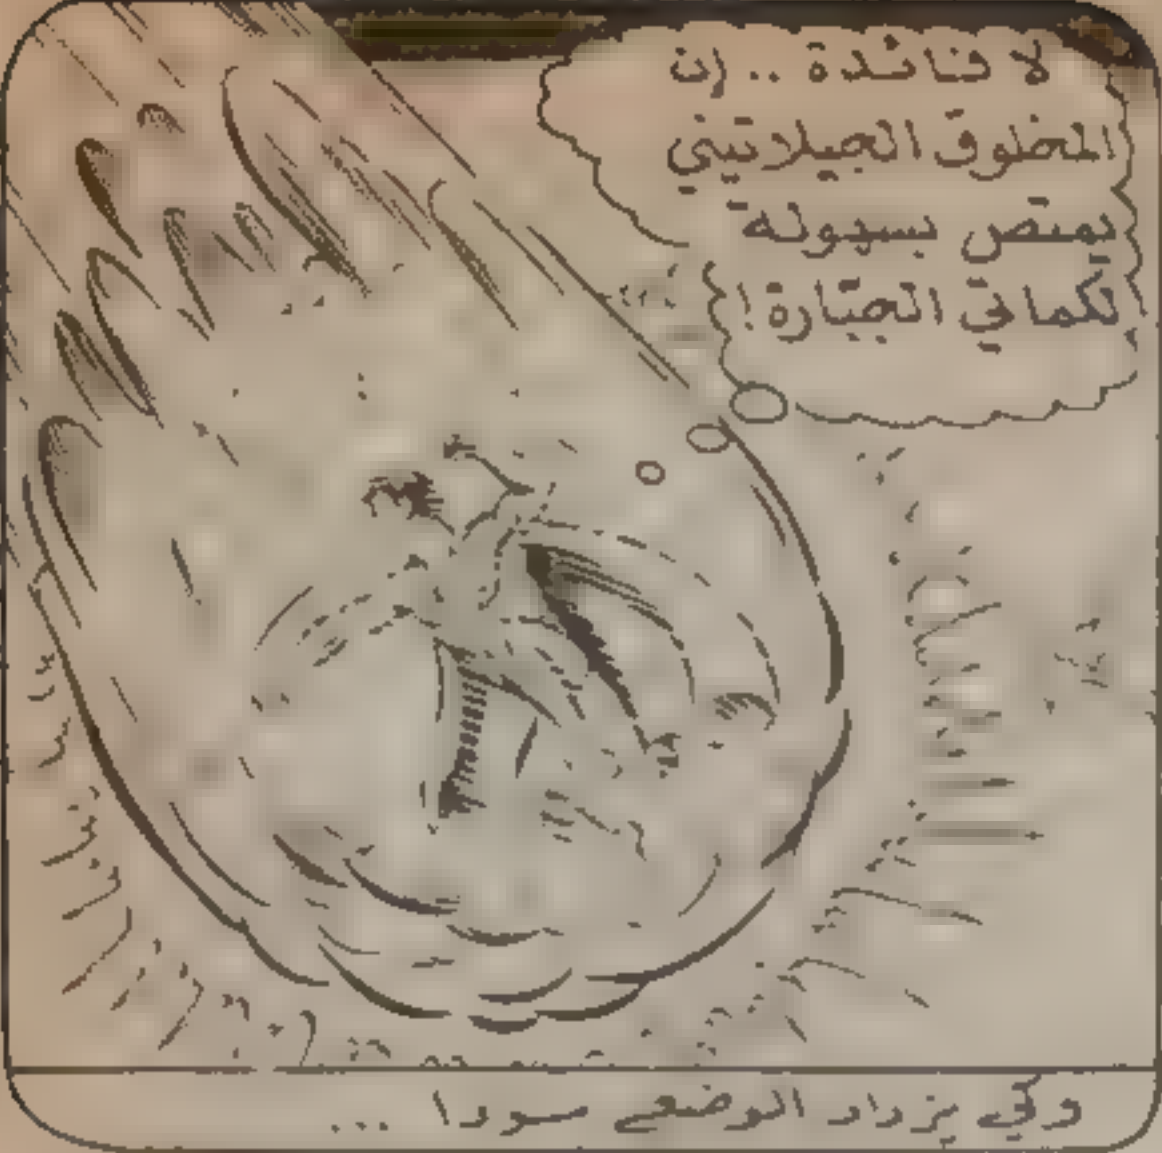 لا فائدة .. إن
المخلوق الجيلاتيني
يمتص بسهولة
لكماتي الجبارة!
ولكي يزداد الوضع سوءا ...